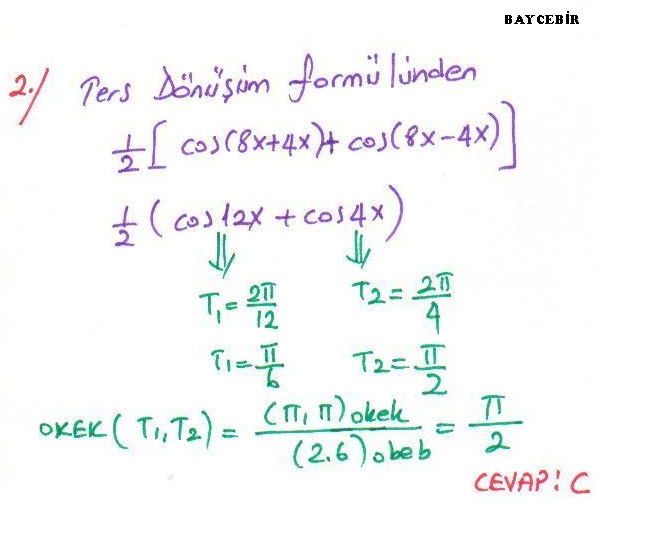 BAYCEBİR
2./ Ters Dönüşüm formülünden
1/2 [ cos(8x+4x)+ cos(8x-4x)]
1/2 ( cos12x + cos4x)
⇓ ⇓
T₁ = 2π/12 T₂ = 2π/4
T₁ = π/6 T₂ = π/2
OKEK ( T₁,T₂) = (π, π) okek / (2.6) obeb = π/2
CEVAP: C